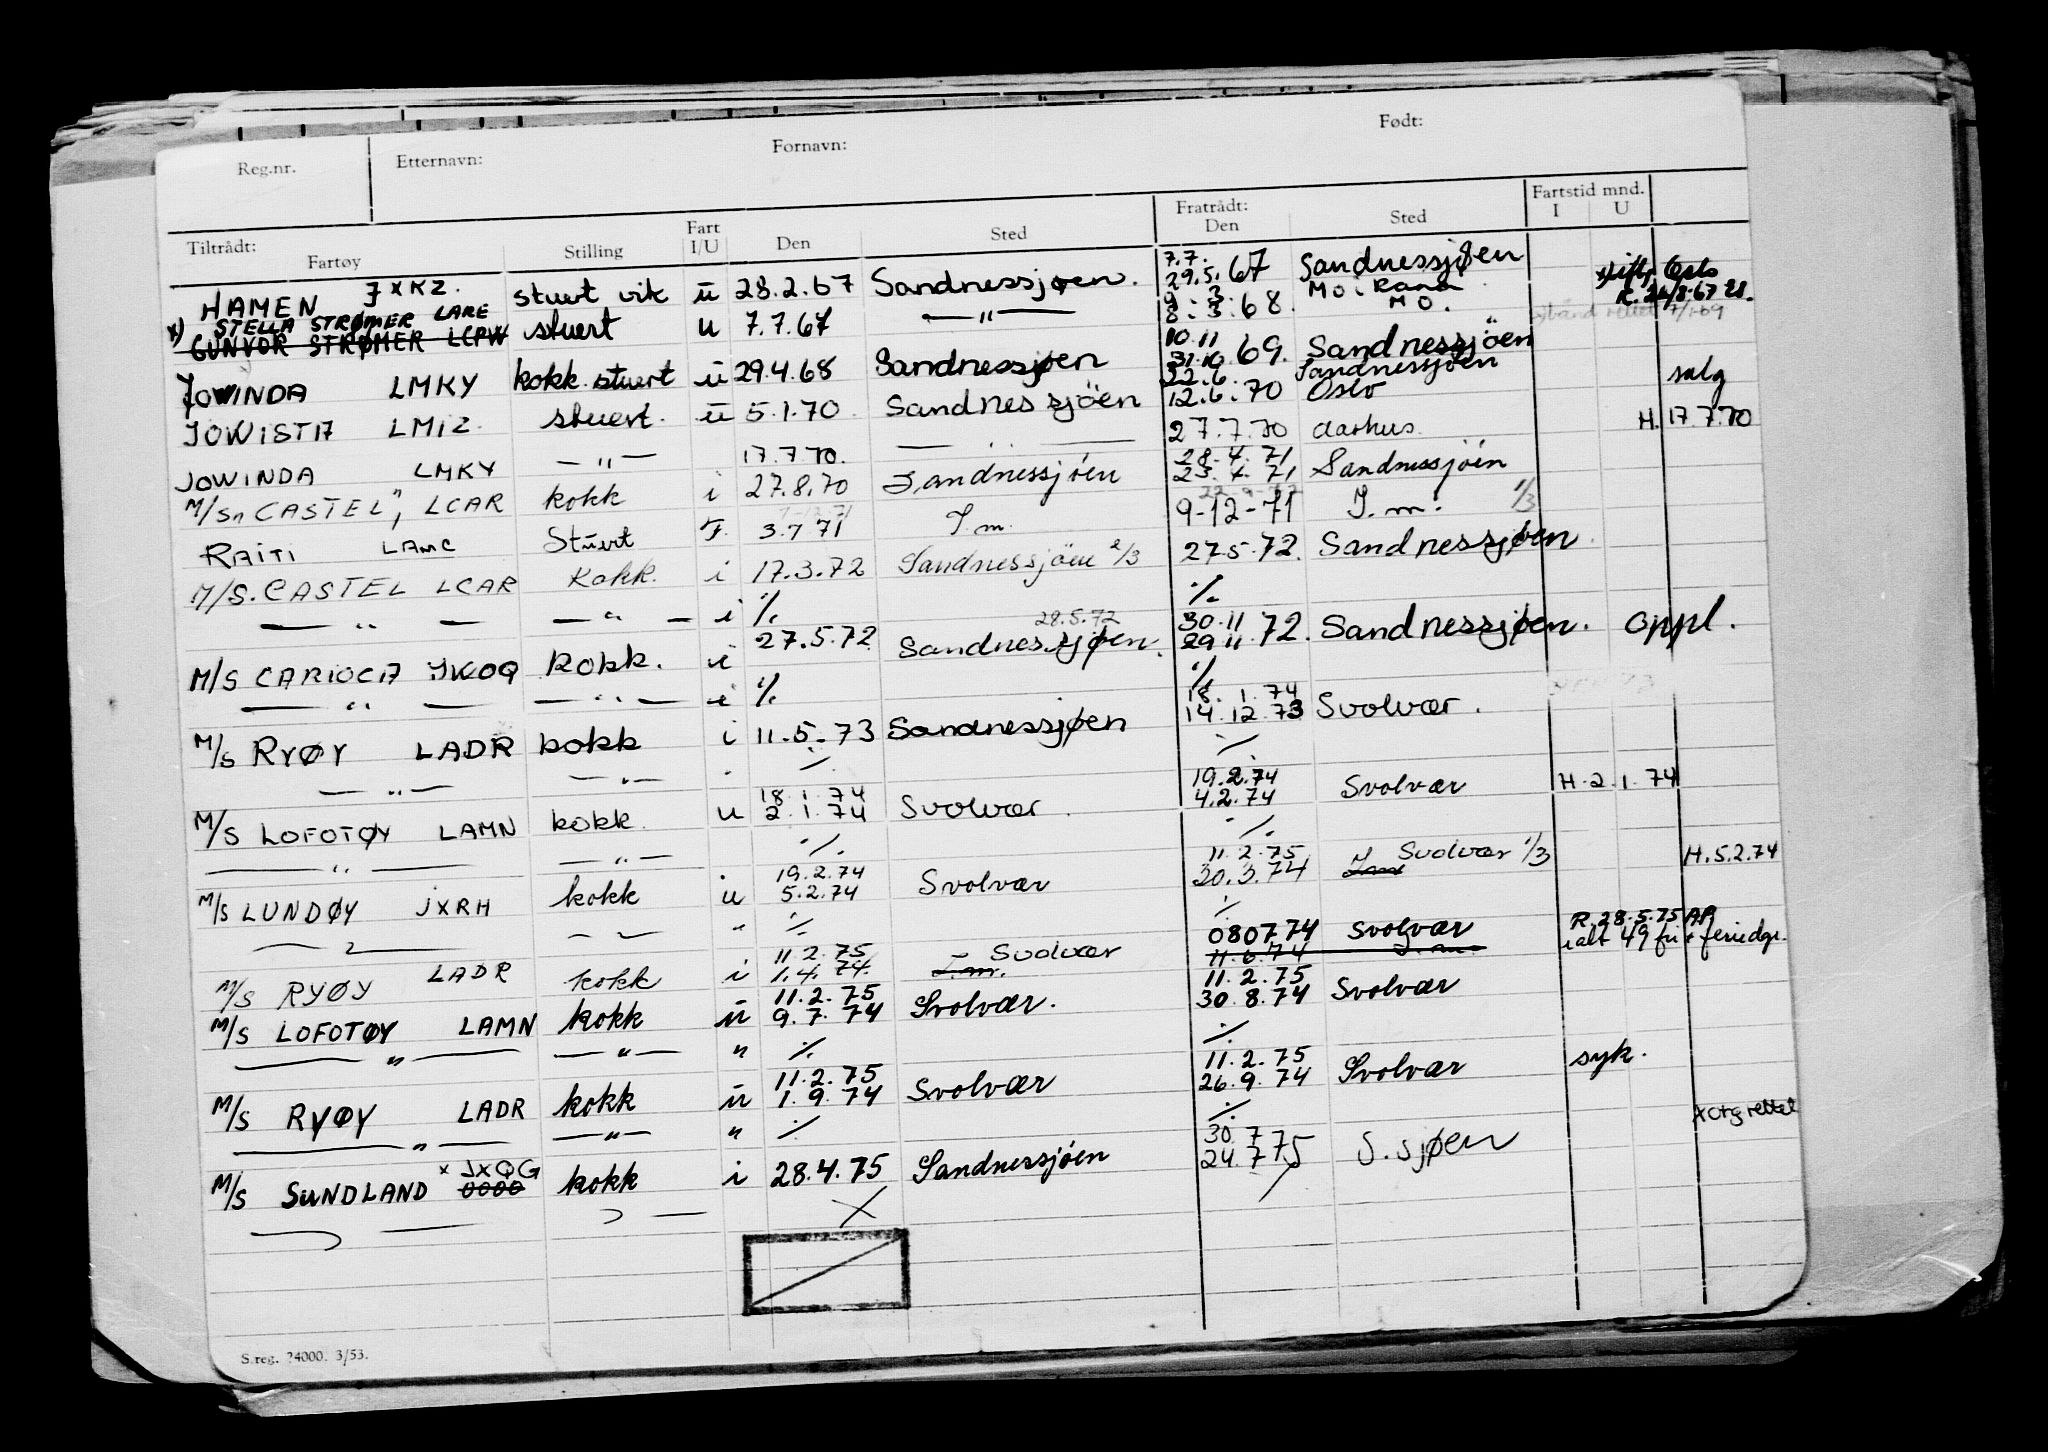 Reg.nr. Etternavn: Fornavn: Født:
Tiltrådt: Fratrådt: Fartstid mnd.
Fartøy Stilling Fart I/U Den Sted Den Sted I U
HAMEN JXKZ. stuert vik ū 28.2.67 Sandnessjøen. 7.7. 29.5.67 Sandnessjøen Oslo
x) STELLA STRØMER LARE Mo i Rana R. 24/8-67
GUNVOR STRØMER LCPW stuert u 7.7.67 — " — 8.3.68. MO.
JOWINDA LMKY kokk stuert ū 29.4.68 Sandnessjøen 10.11 31.10.69. Sandnessjøen
JOWISTA LMIZ. stuert. ū 5.1.70 Sandnessjöen 22.6. 12.6.70 Sandnessjøen Oslo salg
JOWINDA LMKY — " — 17.7.70. — " — 27.7.70 Aarhus. H. 17.7.70
M/S "CASTEL", LCAR kokk i 27.8.70 Sandnessjöen 28.4.71 23.4.71 Sandnessjöen
RAITI LAMC Stuert 3.7 71 S.m. 9-12-71 S.m. 1/3
M/S. CASTEL LCAR Kokk. i 17.3.72 Sandnessjöen 2/3 27.5.72. Sandnessjøen.
— " — — " — i ./. ./.
28.5.72
M/S CARIOCA JWOQ kokk. i 27.5.72 Sandnessjøen. 30.11 29.11.72. Sandnessjøen. oppl.
— " — — " — i ./. ./.
M/S RYØY LADR kokk i 11.5.73 Sandnessjøen 18.1.74 14.12.73 Svolvær.
— " — — " — ./. ./.
M/S LOFOTØY LAMN kokk. u 18.1.74 2.1.74 Svolvær. 19.2.74 4.2.74 Svolvær H.2.1.74
— " — — " — ./. ./.
M/S LUNDØY JXRH kokk u 19.2.74 5.2.74 Svolvær 11.2.75 30.3.74 Svolvær 1/3 H.5.2.74
— " — — " — " ./. ./.
M/S RYØY LADR kokk i 11.2.75 1.4.74. S.m. Svolvær 080774 Svolvær R.28.5.75 AP
11.6.74 S.m. ialt 49 fri + feriedgr.
M/S LOFOTØY LAMN kokk ū 11.2.75 9.7.74 Svolvær. 11.2.75 30.8.74 Svolvær
— " — — " — " ./. ./.
M/S RYØY LADR kokk ū 11.2.75 1.9.74 Svolvær 11.2.75 26.9.74 Svolvær syk.
— " — — " — " ./. ./.
x JXQG x rettet
M/S SUNDLAND 0000 kokk i 28.4.75 Sandnessjöen 30.7 24.7 75 S.sjøen
S.reg. 74000. 3/53.